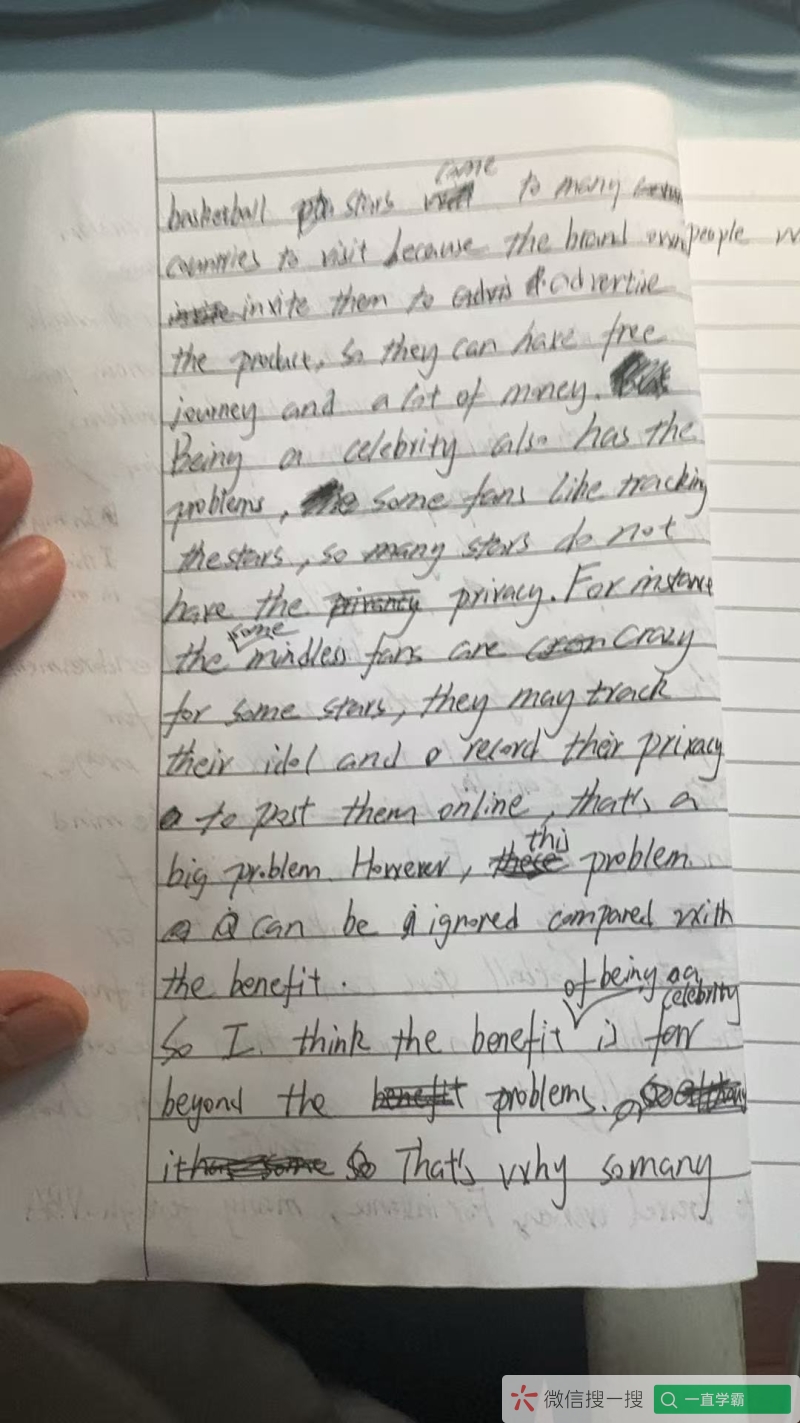 came
basketball stars to many
countries to visit because the brand people
invite them to advertise
the product, so they can have free
journey and a lot of money.
Being a celebrity also has the
problems, some fans like tracking
the stars, so many stars do not
have the privacy. For instance
some
the mindless fans are crazy
for some stars, they may track
their idol and record their privacy
to post them online, that's a
this
big problem. However, problem
can be ignored compared with
the benefit.
of being a
celebrity
So I think the benefit is far
beyond the problems.
That's why so many
微信搜一搜
一直学霸